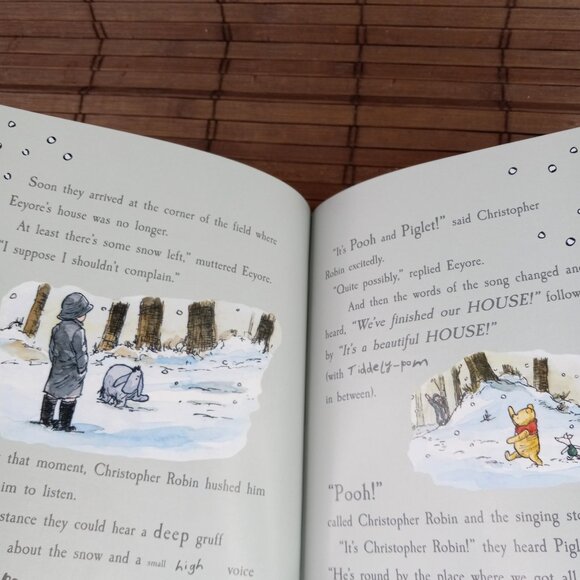 Soon they arrived at the corner of the field where
Eeyore's house was no longer.
At least there's some snow left," muttered Eeyore.
"I suppose I shouldn't complain."
that moment, Christopher Robin hushed him
to listen.
they could hear a deep gruff
about the snow and a small high voice
"It's Pooh and Piglet!" said Christopher
Robin excitedly.
"Quite possibly," replied Eeyore.
And then the words of the song changed and
heard, "We've finished our HOUSE!"
by "It's a beautiful HOUSE!"
(with Tiddely-pom
in between).
"Pooh!"
called Christopher Robin and the singing
"It's Christopher Robin!" they heard
"He's round by the place where we got all